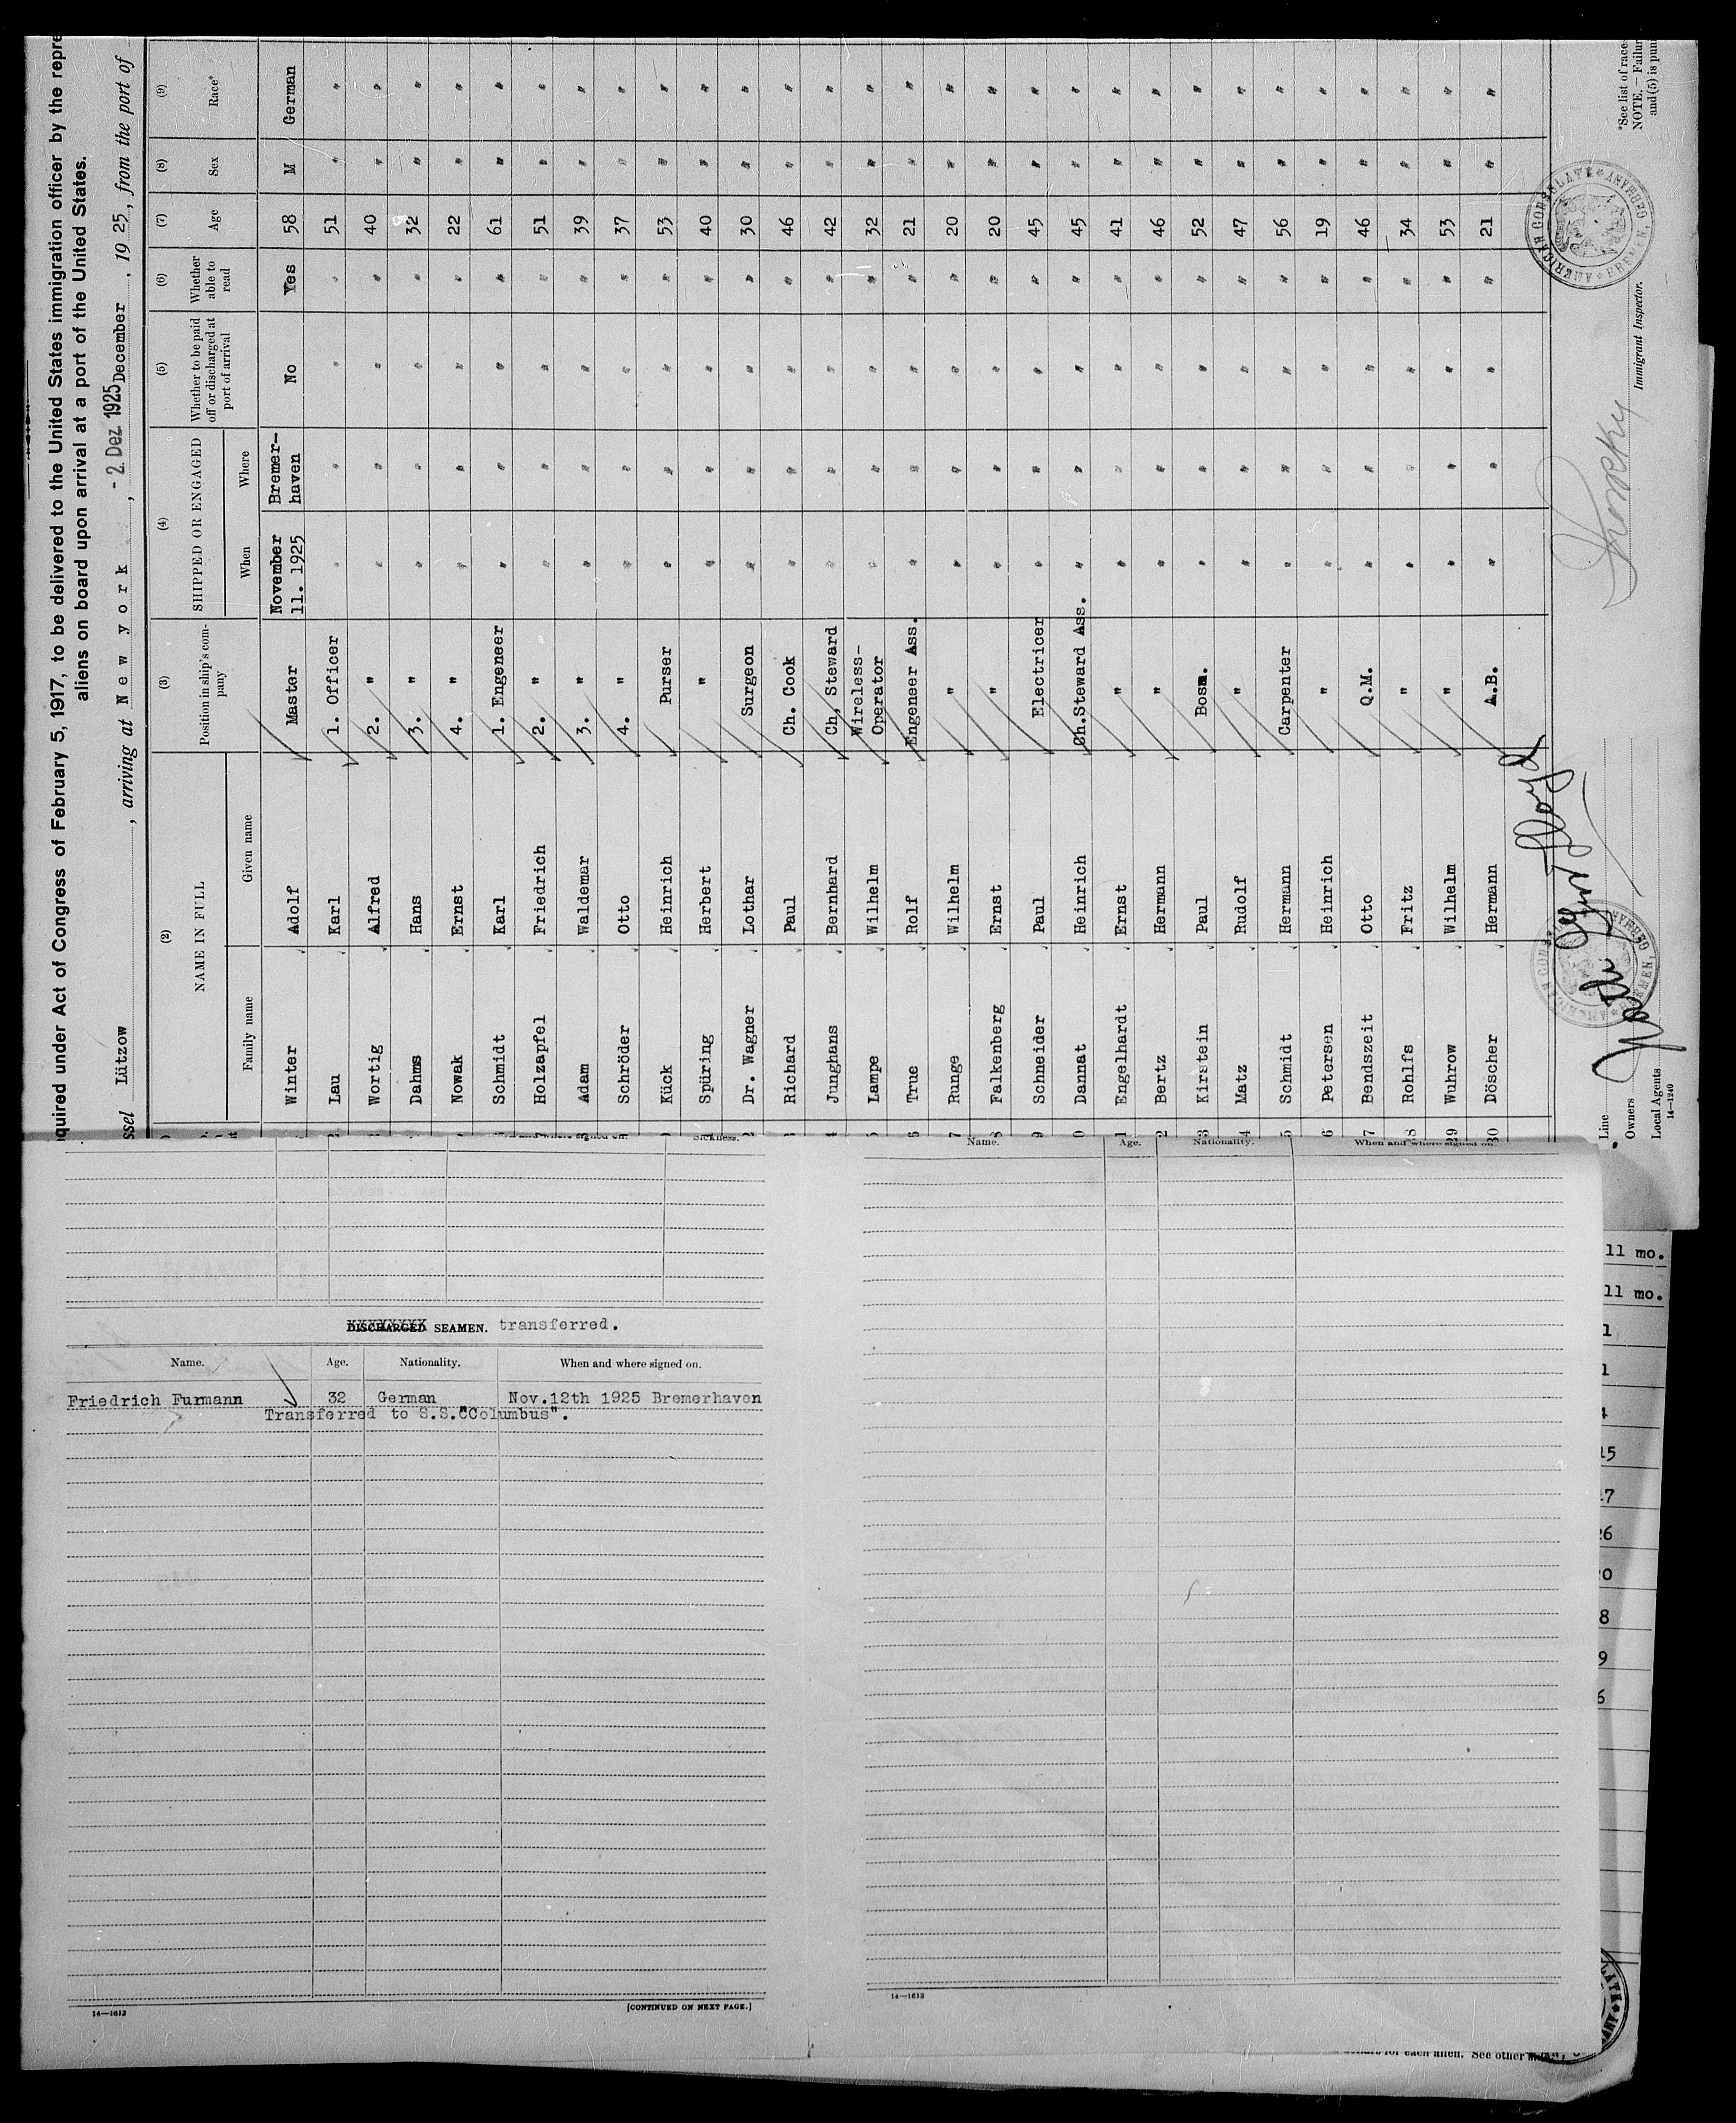 quired under Act of Congress of February 5, 1917, to be delivered to the United States immigration officer by the repre
aliens on board upon arrival at a port of the United States.
ssel Lützow, arriving at New york, -2. Dez 1925 December, 1925, from the port of
(2) (3) (4) (5) (6) (7) (8) (9)
NAME IN FULL Position in ship's company SHIPPED OR ENGAGED Whether to be paid off or discharged at port of arrival Whether able to read Age Sex Race*
Family name Given name When Where
Winter Adolf Master November 11. 1925 Bremer-haven No Yes 58 M German
2 Lau Karl 1. Officer " " " " 51 " "
3 Wortig Alfred 2. " " " " " 40 " "
Dahms Hans 3. " " " " " 32 " "
Nowak Ernst 4. " " " " " 22 " "
Schmidt Karl 1. Engeneer " " " " 61 " "
Holzapfel Friedrich 2. " " " " " 51 " "
Adam Waldemar 3. " " " " " 39 " "
Schröder Otto 4. " " " " " 37 " "
0 Kück Heinrich Purser " " " " 53 " "
1 Spüring Herbert " " " " " 40 " "
2 Dr. Wagner Lothar Surgeon " " " " 30 " "
3 Richard Paul Ch. Cook " " " " 46 " "
4 Junghans Bernhard Ch, Steward " " " " 42 " "
5 Lampe Wilhelm Wireless-Operator " " " " 32 " "
6 True Rolf Engenser Ass. " " " " 21 " "
7 Runge Wilhelm " " " " " 20 " "
8 Falkenberg Ernst " " " " " 20 " "
9 Schneider Paul Electricer " " " " 45 " "
0 Dannat Heinrich Ch.Steward Ass. " " " " 45 " "
1 Engelhardt Ernst " " " " " 41 " "
2 Bertz Hermann " " " " " 46 " "
3 Kirstein Paul Bosm. " " " " 52 " "
4 Matz Rudolf " " " " " 47 " "
5 Schmidt Hermann Carpenter " " " " 56 " "
6 Petersen Heinrich " " " " " 19 " "
7 Bendszeit Otto Q.M. " " " " 46 " "
8 Rohlfs Fritz " " " " " 34 " "
29 Wuhrow Wilhelm " " " " " 53 " "
30 Döscher Hermann A.B. " " " " 21 " "
AMERICAN CONSULATE BREMEN, GERMANY
AMERICAN CONSULATE BREMEN, GERMANY
Line
Owners
Local Agents
14—1240
Immigrant Inspector.
*See list of race
NOTE.—Failur
and (5) is pun
Sickness.
Name. Age. Nationality. When and where signed on.
DISCHARGED SEAMEN. transferred.
Name. Age. Nationality. When and where signed on.
Friedrich Furmann 32 German Nov.12th 1925 Bremerhaven
Transferred to S.S."Columbus".
14—1613
[CONTINUED ON NEXT PAGE.]
14—1613
11 mo.
11 mo.
1
1
4
15
17
26
20
8
9
6
for each alien. See other